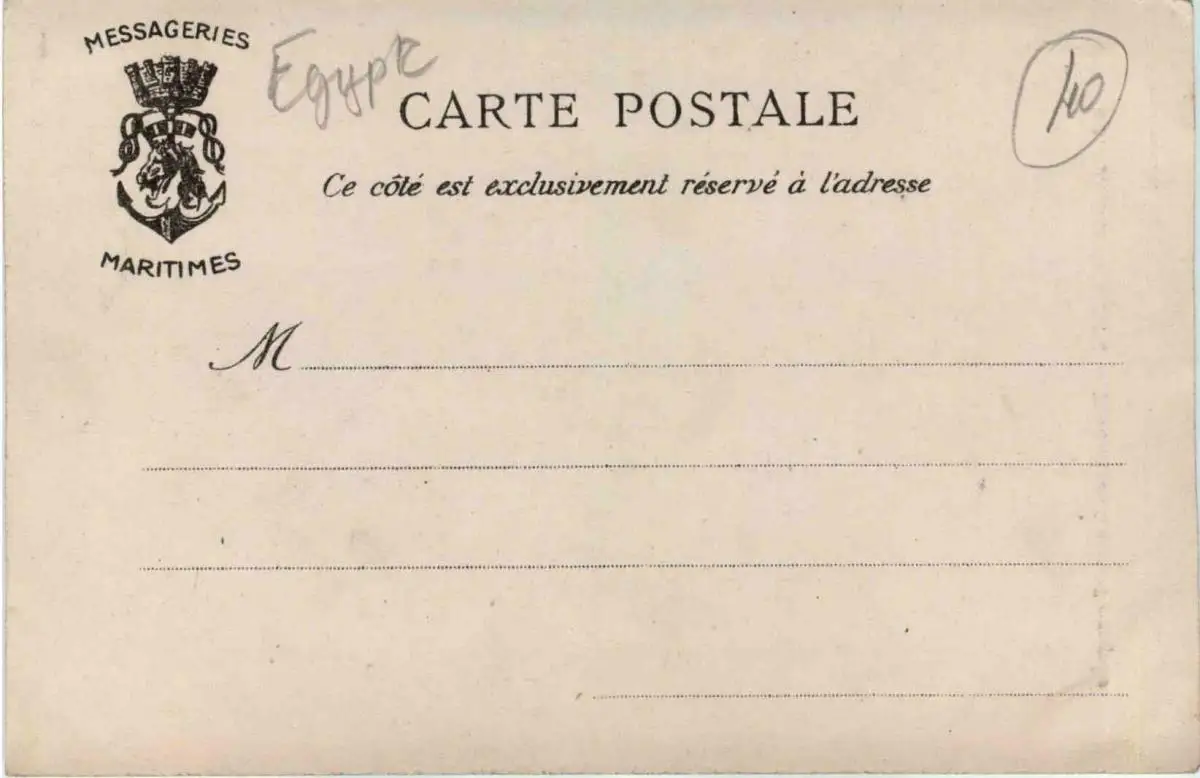 MESSAGERIES
MARITIMES
Egypte
40
CARTE POSTALE
Ce côté est exclusivement réservé à l'adresse
M